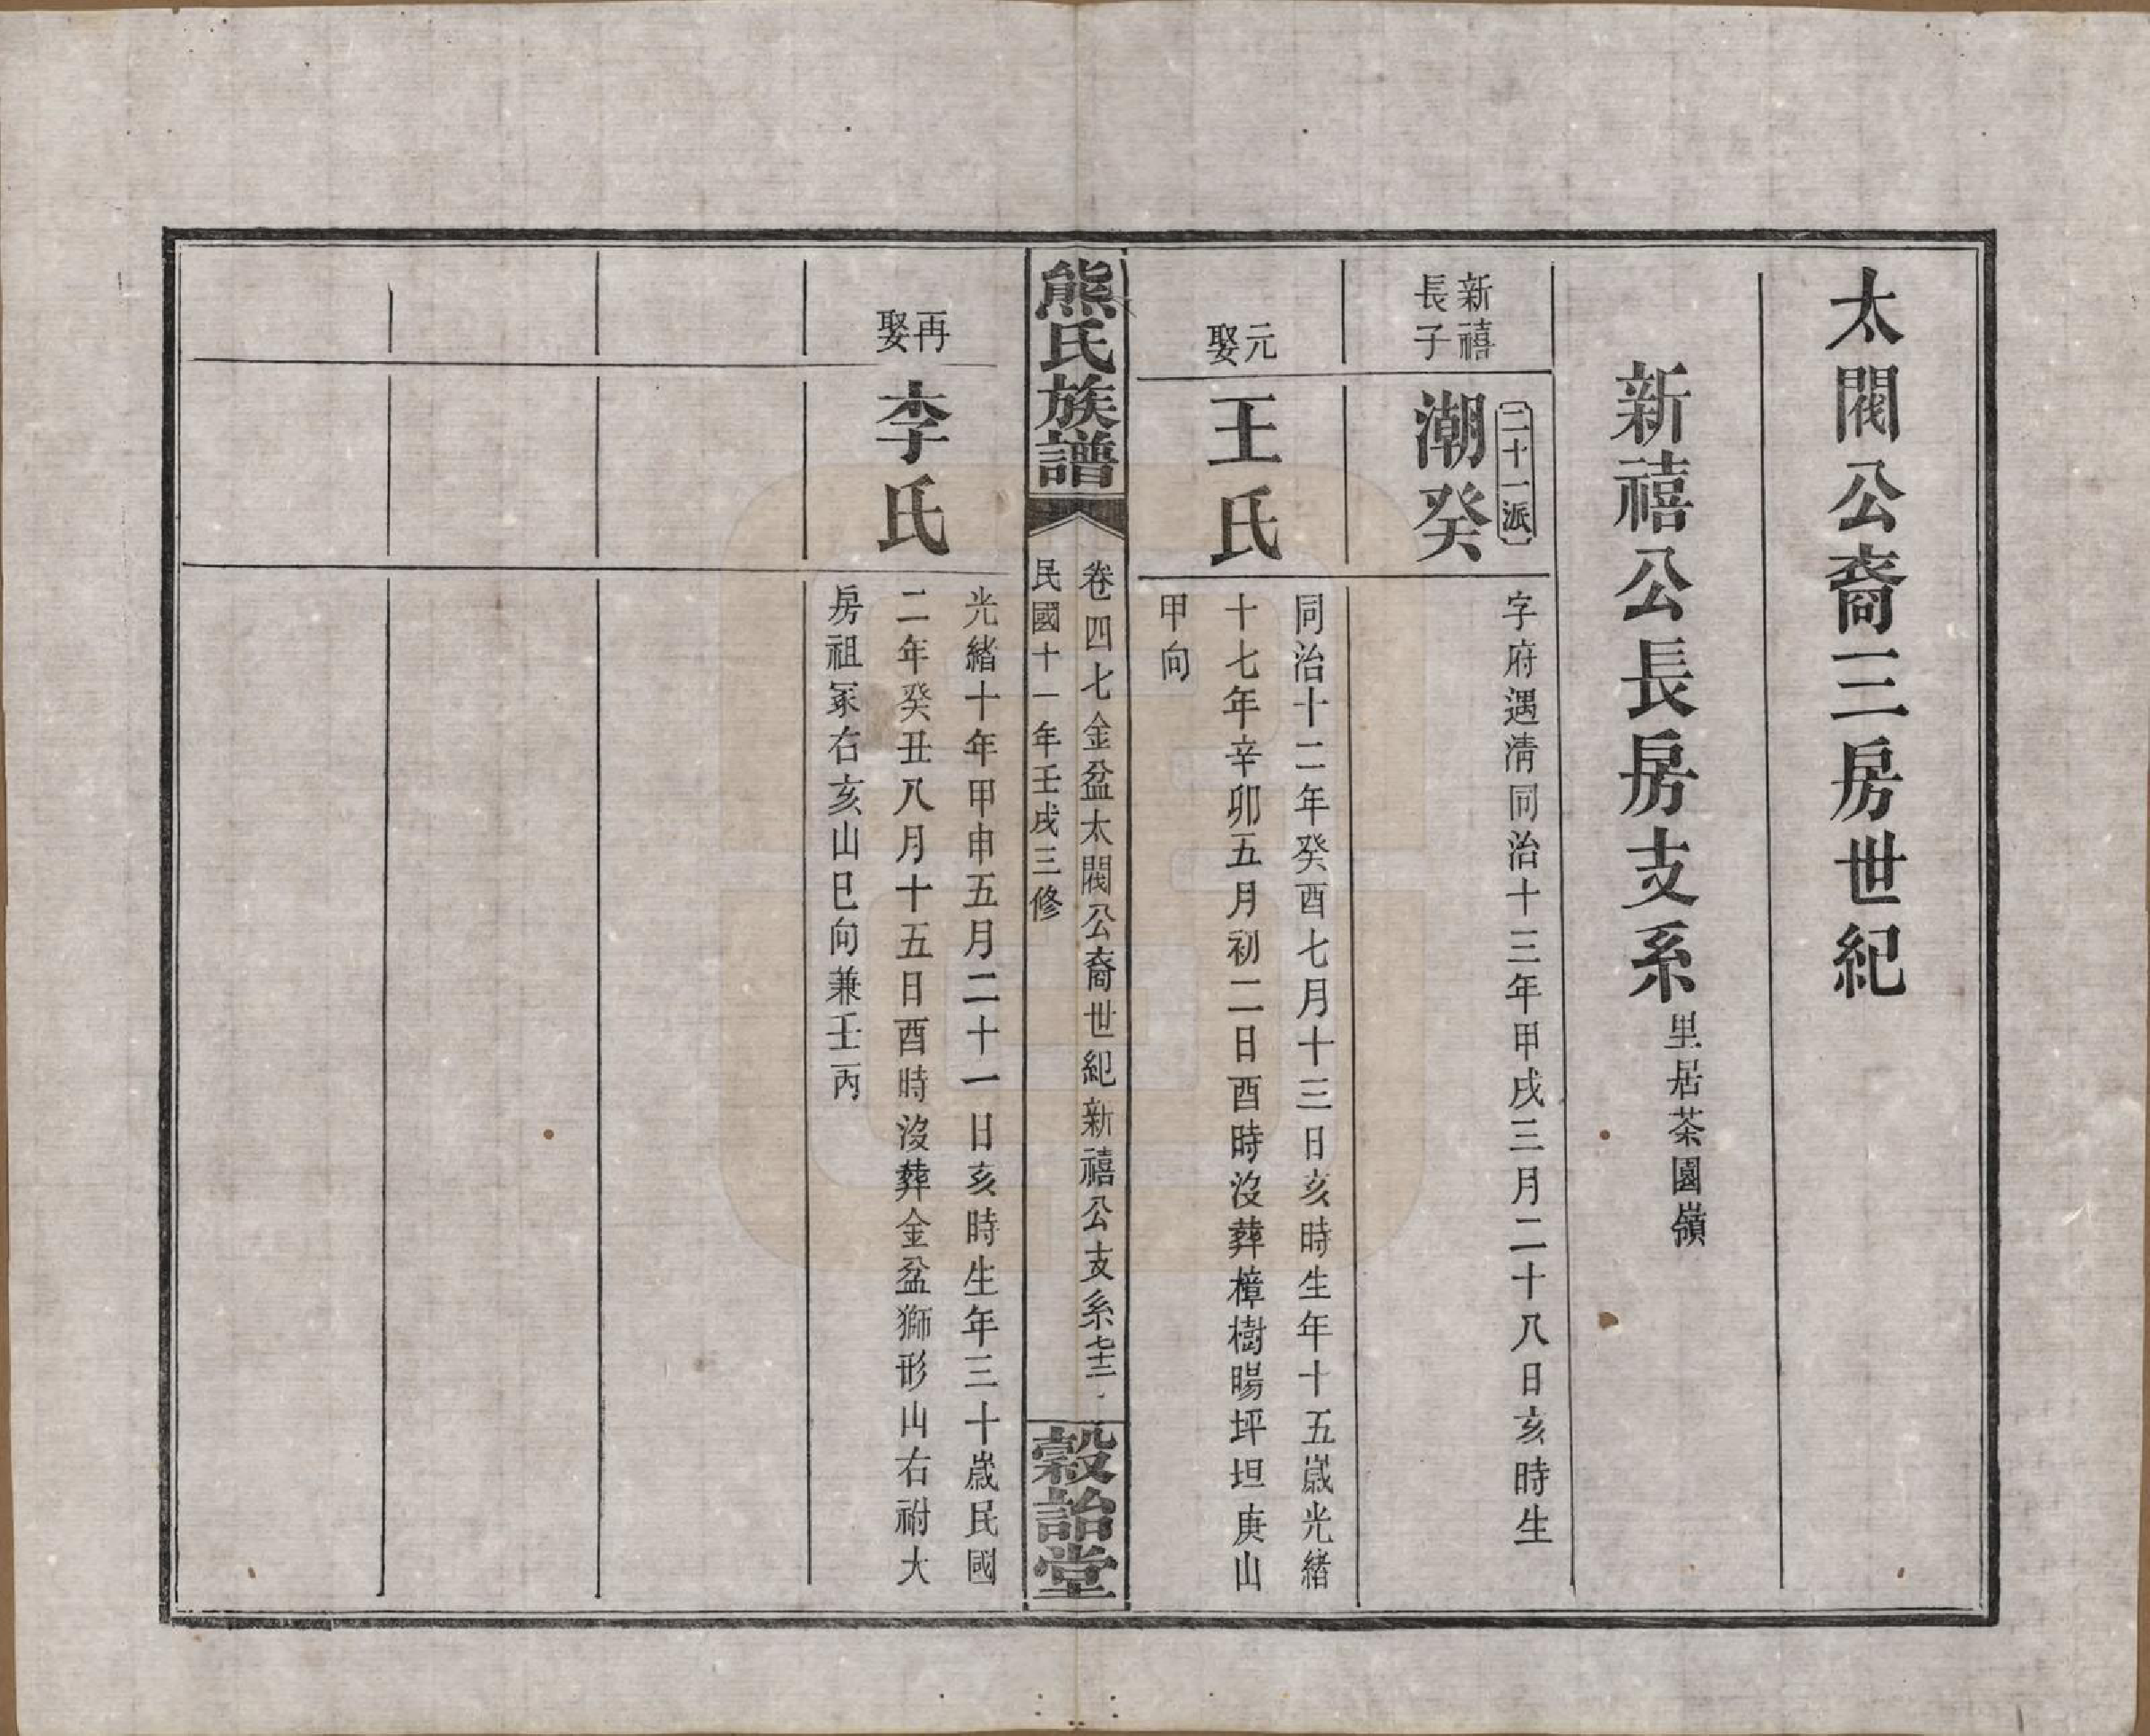 太閥公裔三房世紀
新禧公長房支系
里居茶園嶺
新禧
長子
二十一派
潮癸
字府遇清同治十三年甲戌三月二十八日亥時生
元
娶
王氏
同治十二年癸酉七月十三日亥時生年十五歲光緒
十七年辛卯五月初二日酉時沒葬樟樹暘坪坦庚山
甲向
熊氏族譜
卷四七金盆太閥公裔世紀新禧公支系
民國十一年壬戌三修
穀詒堂
再
娶
李氏
光緒十年甲申五月二十一日亥時生年三十歲民國
二年癸丑八月十五日酉時沒葬金盆獅形山右祔大
房祖冢右亥山巳向兼壬丙